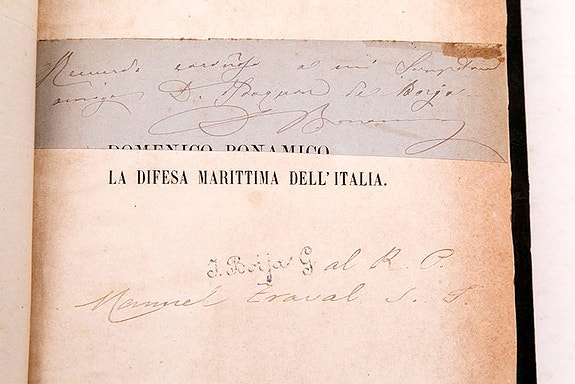 Recuerdo cariñoso a mi simpático
amigo D. Joaquin de Borja.
D. Bonamico
DOMENICO BONAMICO
LA DIFESA MARITTIMA DELL'ITALIA.
J. Borja G al R. P.
Manuel Traval S. J.